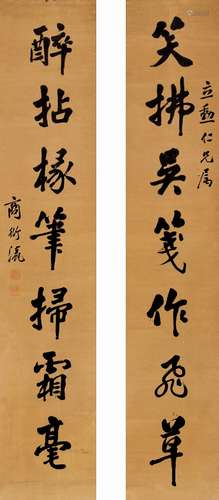 立勳仁兄属
笑拂吴笺作飛草
醉拈椽筆掃霜毫
商衍瀛